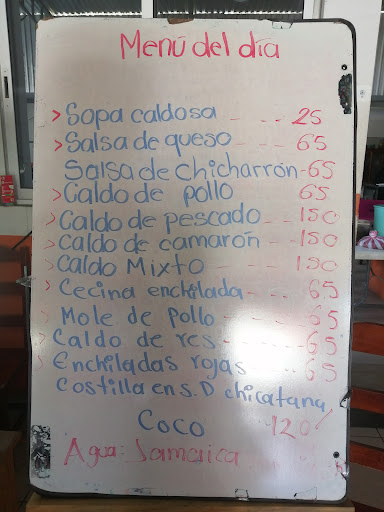 Menú del día
> Sopa caldosa - - - 25
> Salsa de queso - - - 65
Salsa de chicharrón - 65
> Caldo de pollo 65
> Caldo de pescado - - - 150
> Caldo de camarón - - 150
> Caldo Mixto - - - 150
> Cecina enchilada - - - - 65
> Mole de Pollo - - - - 65
> Caldo de res - - - - 65
> Enchiladas rojas - - - 65
Costilla en S. D chicatana
Coco - 120
Agua: Jamaica